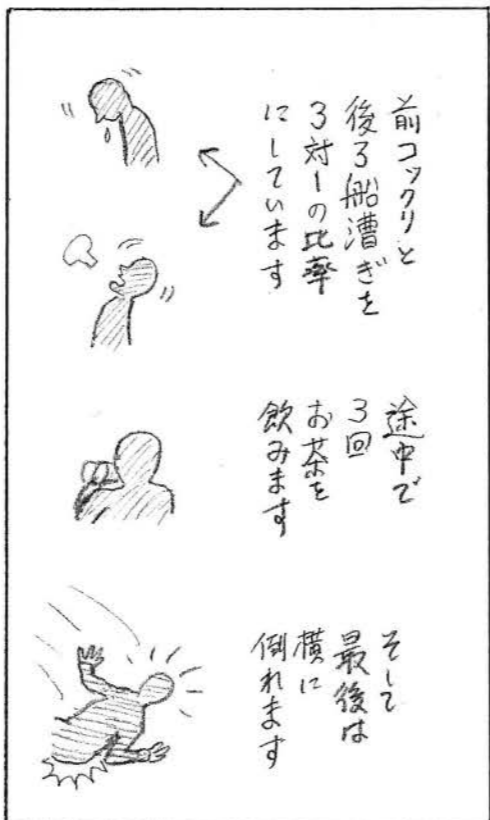 前コックリと
後ろ船漕ぎを
3対1の比率
にしています
途中で
3回
お茶を
飲みます
そして
最後は
横に
倒れます